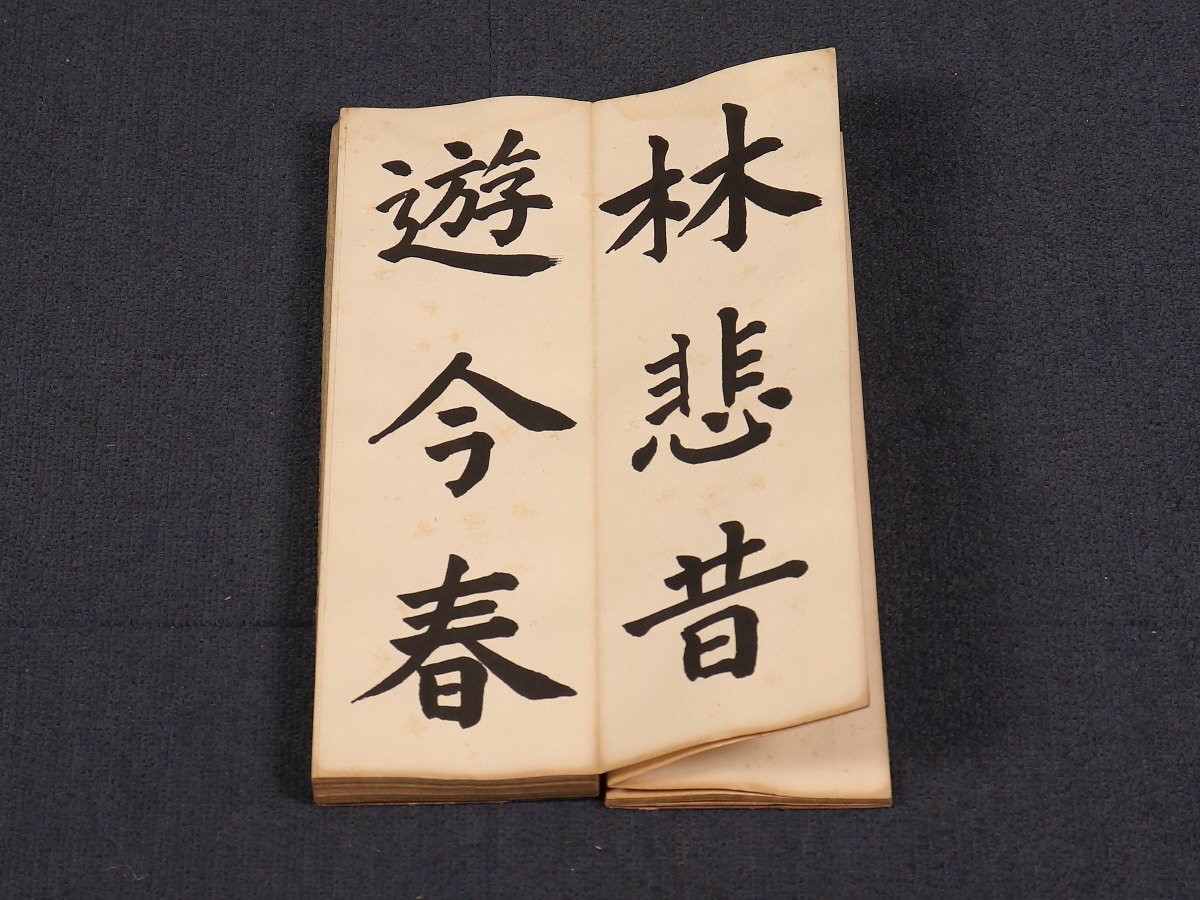 林悲昔
遊今春